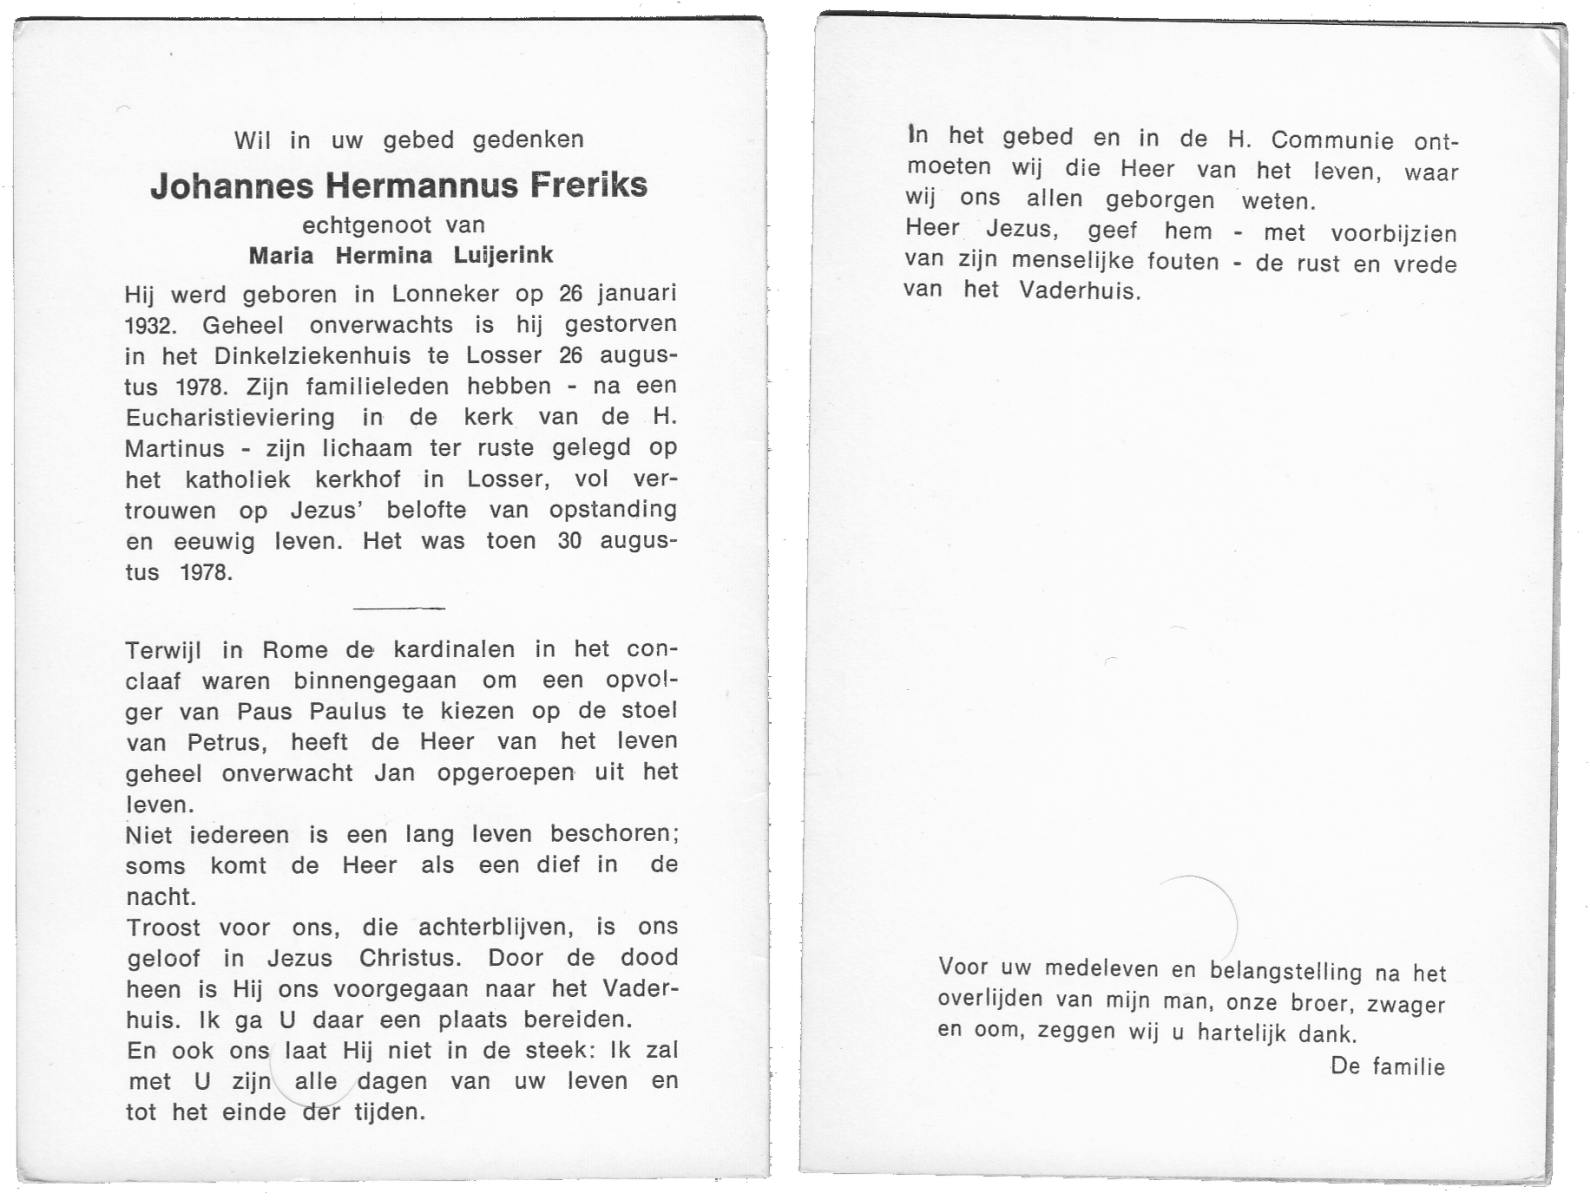 Wil in uw gebed gedenken
Johannes Hermannus Freriks
echtgenoot van
Maria Hermina Luijerink
Hij werd geboren in Lonneker op 26 januari
1932. Geheel onverwachts is hij gestorven
in het Dinkelziekenhuis te Losser 26 augus-
tus 1978. Zijn familieleden hebben - na een
Eucharistieviering in de kerk van de H.
Martinus - zijn lichaam ter ruste gelegd op
het katholiek kerkhof in Losser, vol ver-
trouwen op Jezus' belofte van opstanding
en eeuwig leven. Het was toen 30 augus-
tus 1978.
Terwijl in Rome de kardinalen in het con-
claaf waren binnengegaan om een opvol-
ger van Paus Paulus te kiezen op de stoel
van Petrus, heeft de Heer van het leven
geheel onverwacht Jan opgeroepen uit het
leven.
Niet iedereen is een lang leven beschoren;
soms komt de Heer als een dief in de
nacht.
Troost voor ons, die achterblijven, is ons
geloof in Jezus Christus. Door de dood
heen is Hij ons voorgegaan naar het Vader-
huis. Ik ga U daar een plaats bereiden.
En ook ons laat Hij niet in de steek: Ik zal
met U zijn alle dagen van uw leven en
tot het einde der tijden.
In het gebed en in de H. Communie ont-
moeten wij die Heer van het leven, waar
wij ons allen geborgen weten.
Heer Jezus, geef hem - met voorbijzien
van zijn menselijke fouten - de rust en vrede
van het Vaderhuis.
Voor uw medeleven en belangstelling na het
overlijden van mijn man, onze broer, zwager
en oom, zeggen wij u hartelijk dank.
De familie